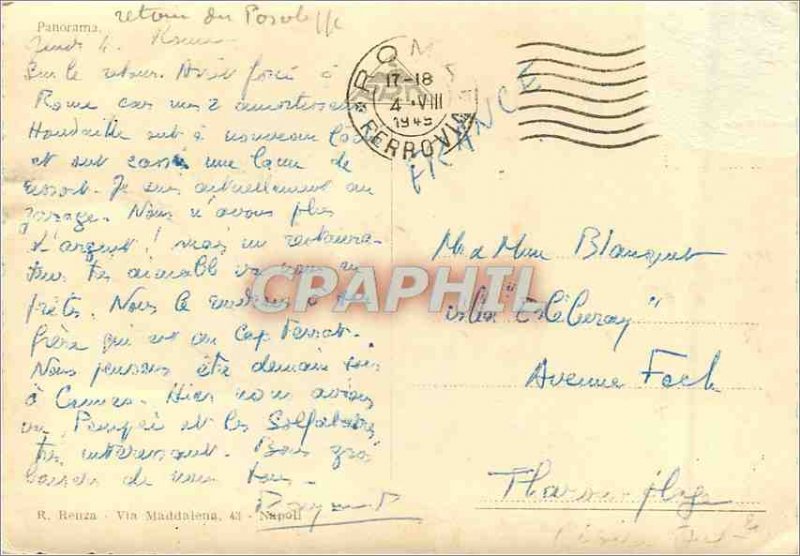 retour du
Panorama,
Jeudi 4. Rome
Sur le retour. Arrêt forcé à
Rome car nos 2 amortisseurs
Houdaille ont à nouveau lâché
et ont cassé une lame de
ressort. Je suis actuellement au
garage. Nous n'avons plus
d'argent! mais un restaura-
teur très aimable va nous en
prêter. Nous le rendrons à son
frère qui est au Cap Ferrat.
Nous pensons être demain soir
à Cannes. Hier nous avions
vu Pompéi et les Solfatares
très intéressant. Bons gros
baisers de nous tous.
R. Renza - Via Maddalena, 43 - Napoli
ROMA
17-18
4 • VIII
1949
FERROVIA
FRANCE
M. & Mme Blanquet
villa
Avenue Foch
Tharon-plage
CPAPHIL